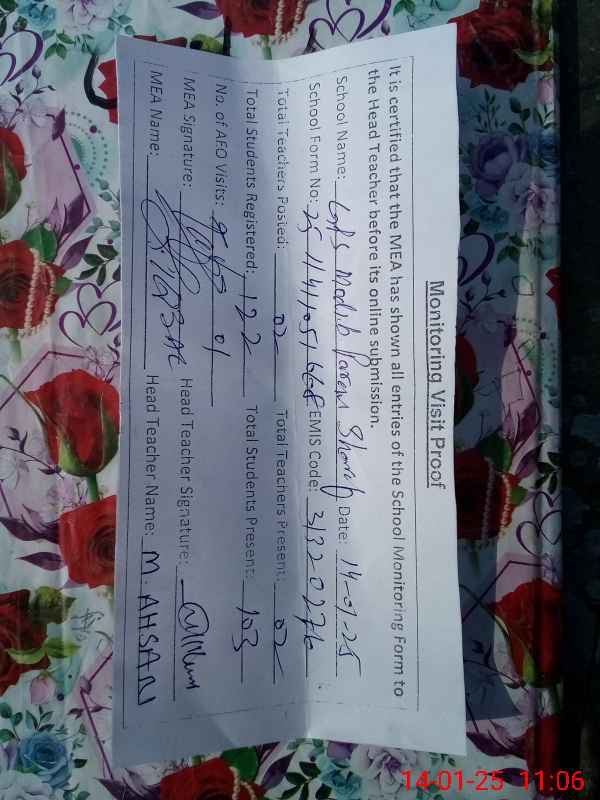 Monitoring Visit Proof
It is certified that the MEA has shown all entries of the School Monitoring Form to
the Head Teacher before its online submission.
School Name: GPS Date: 14-01-25
School Form No: EMIS Code: 31320276
Total Teachers Posted: 02 Total Teachers Present: 02
Total Students Registered: 122 Total Students Present: 103
No. of AEO Visits: 01
MEA Signature: Head Teacher Signature:
MEA Name: Head Teacher Name: M. AHSAN
14-01-25 11:06